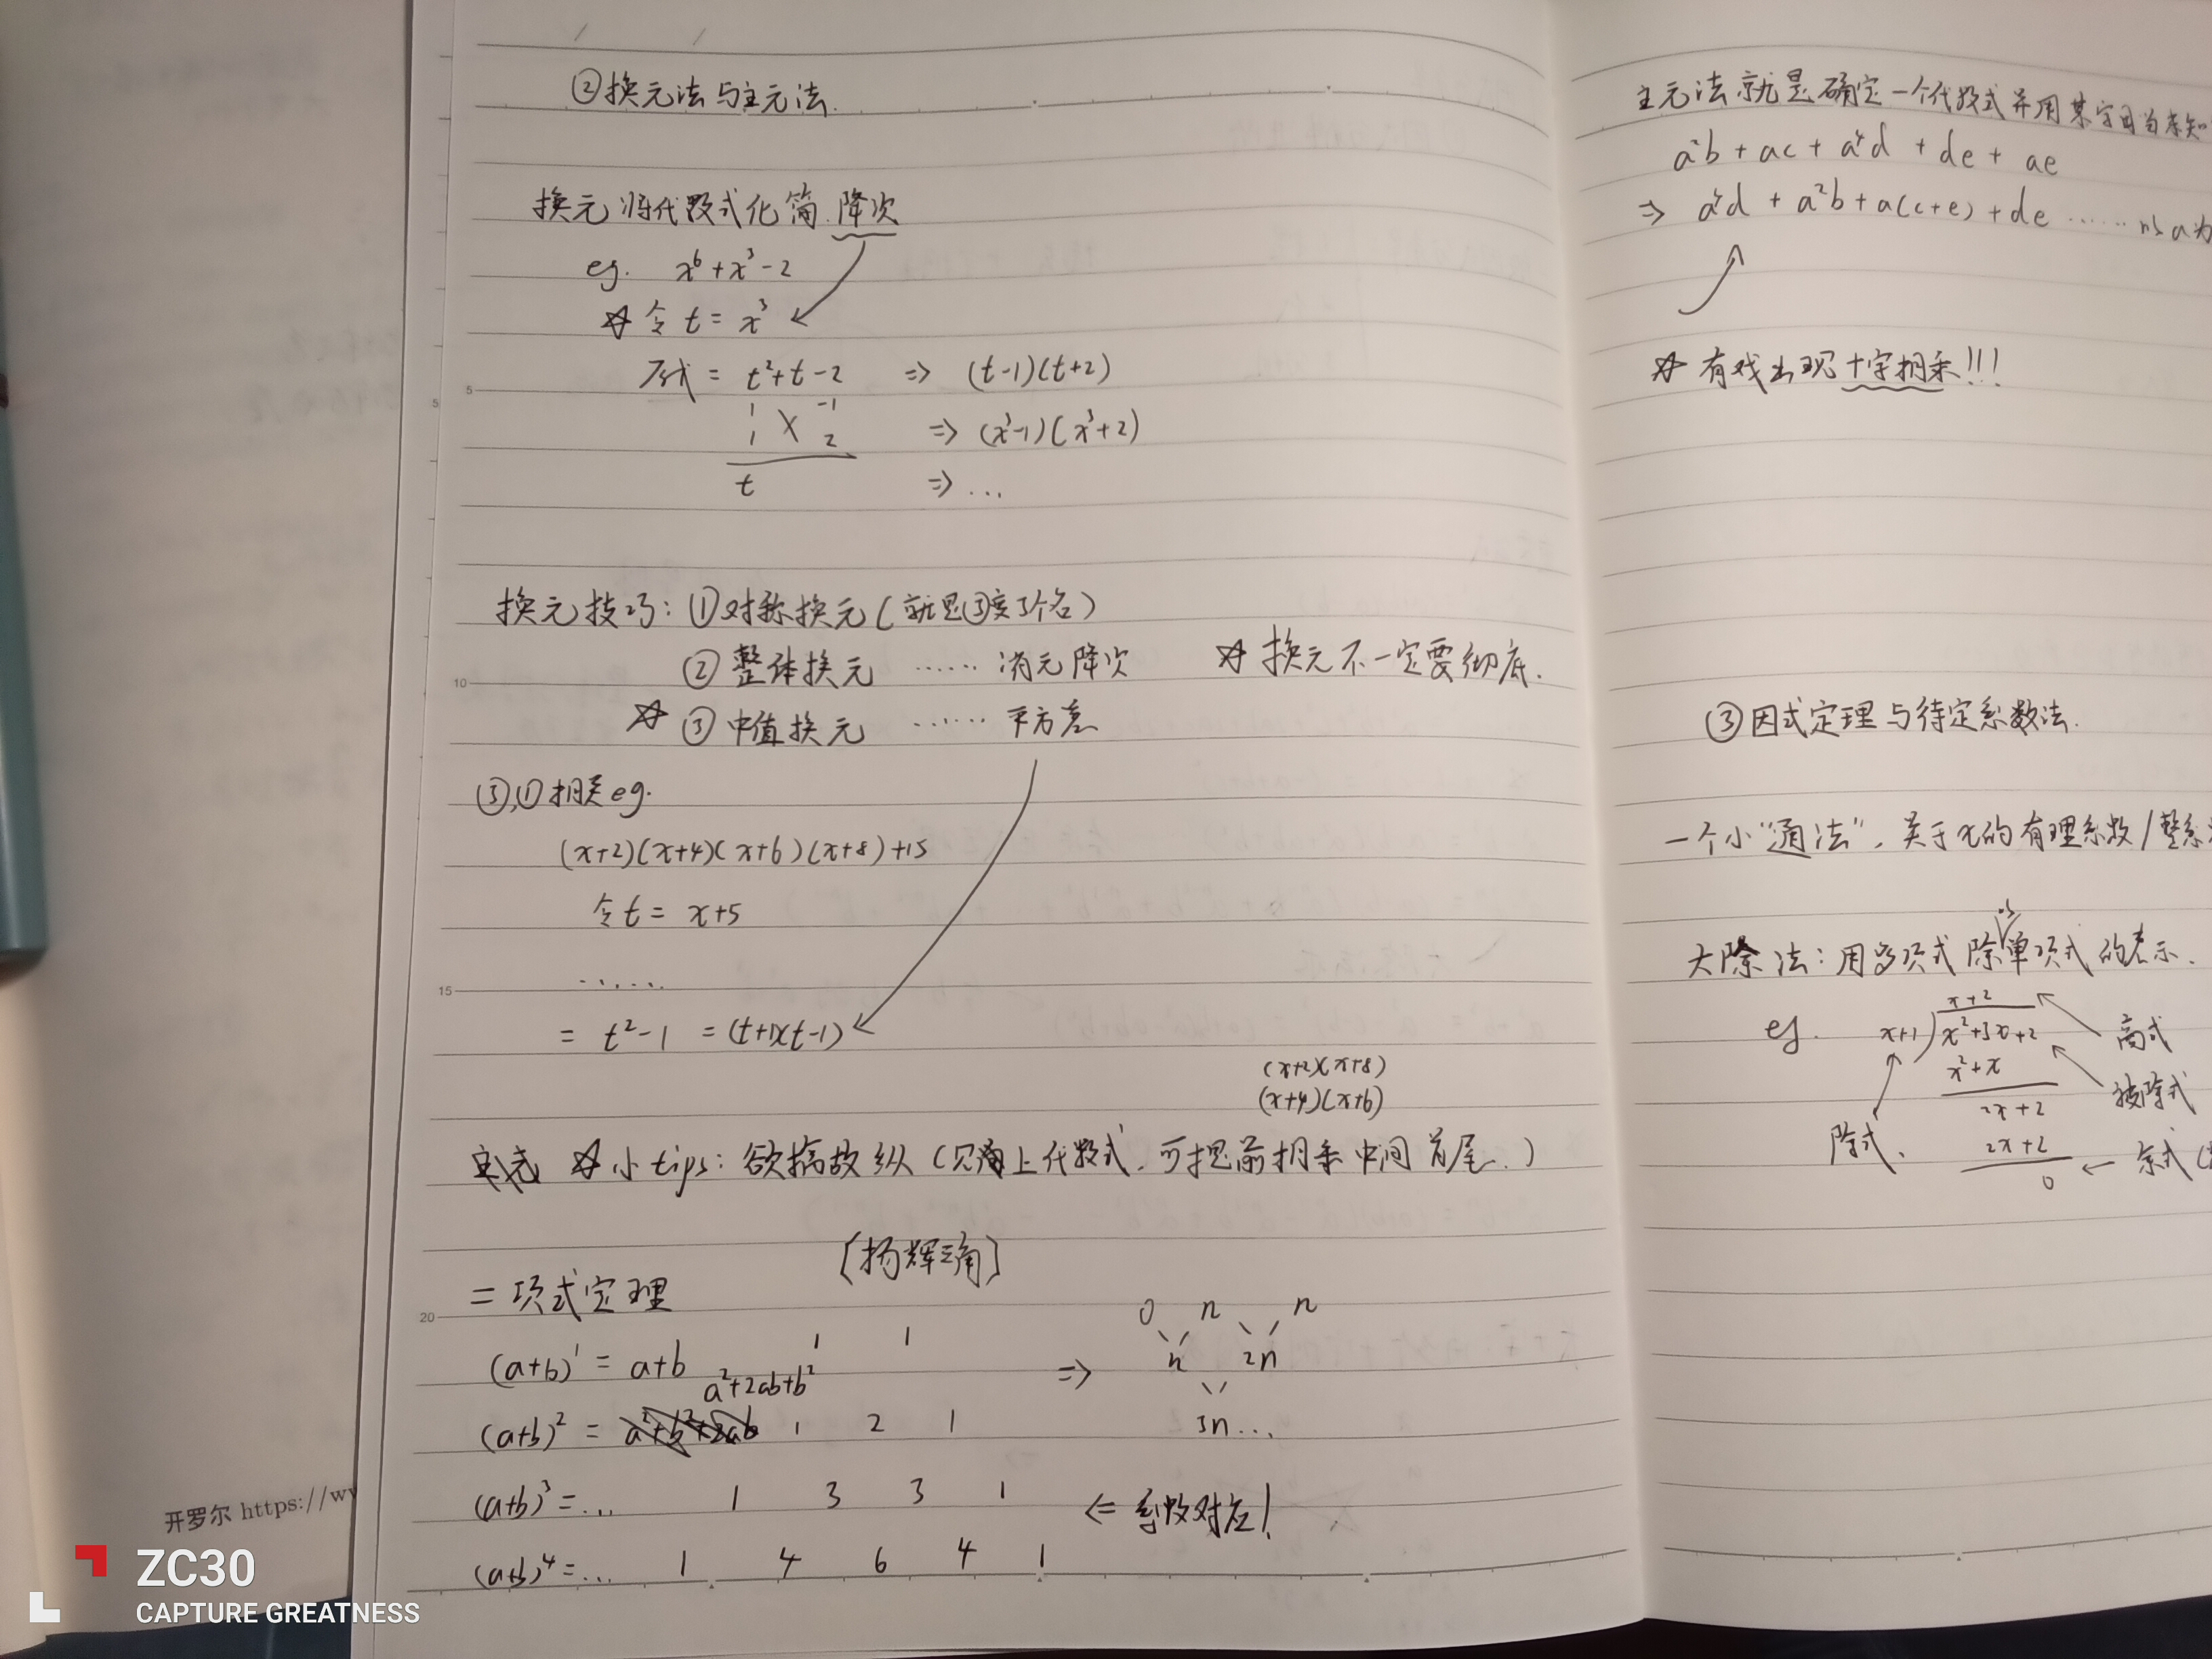 ②换元法与主元法.
换元将代数式化简.降次
eg. x⁶+x³-2
☆令 t = x³
原式 = t²+t-2 => (t-1)(t+2)
1 X -1
1 2 => (x³-1)(x³+2)
t => ...
换元技巧: ①对称换元(就是③变了个名)
②整体换元 ...... 消元降次 ☆换元不一定要彻底.
☆③中值换元 ...... 平方差
③,①相关eg.
(x+2)(x+4)(x+6)(x+8)+15
令t = x+5
......
= t²-1 = (t+1)(t-1)
(x+2)(x+8)
(x+4)(x+6)
☆小tips: 欲擒故纵(见上代数式,可提前相乘中间首尾.)
[杨辉三角]
二项式定理
(a+b)¹ = a+b 1 1
a²+2ab+b²
(a+b)² = a²+b²+2ab 1 2 1
(a+b)³ =... 1 3 3 1 <= 系数对应!
(a+b)⁴ =... 1 4 6 4 1
=> 0 n n
n 2n
3n...
主元法就是确定一个代数式并用某字母当未知
a²b + ac + a⁴d + de + ae
=> a⁴d + a²b + a(c+e) + de ...... 以a为
☆有戏出现十字相乘!!!
③因式定理与待定系数法.
一个小"通法",关于x的有理系数/整系
大除法:用多项式除单项式的表示.
eg. x+2
x+1)x²+3x+2 商式
x²+x 被除式
2x+2
除式. 2x+2
0 ← 余式(
开罗尔 https://w
ZC30
CAPTURE GREATNESS
5
5
10
15
20